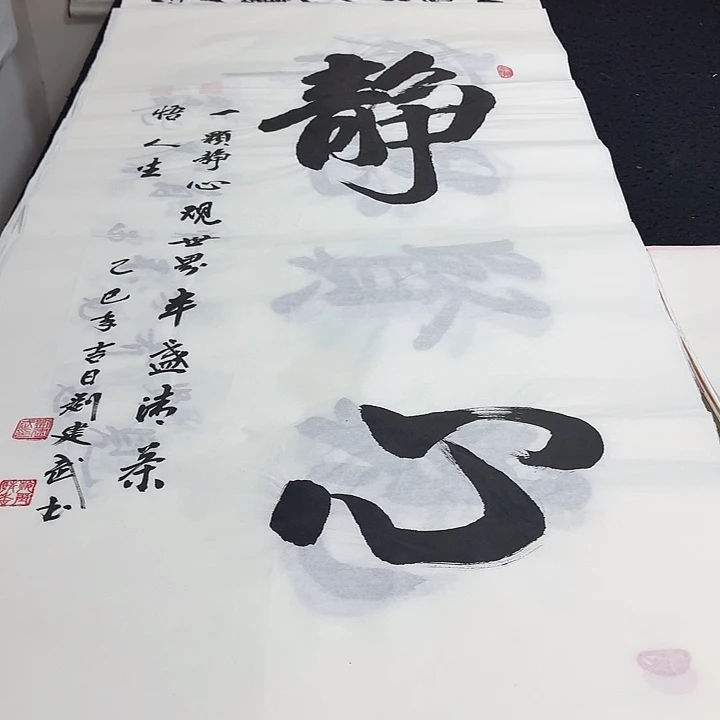 静心
一颗静心观世界半盏清茶
悟人生
乙巳年吉日刘建武书